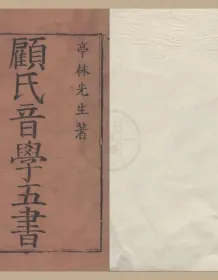 亭林先生著
顧氏音學五書